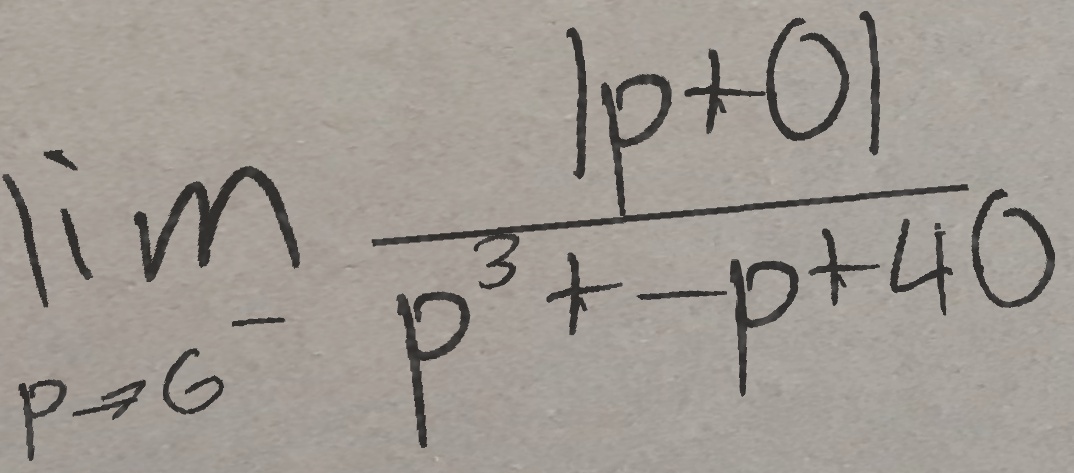 lim_{p→6^-} \frac{|p+0|}{p^3+-p+40}